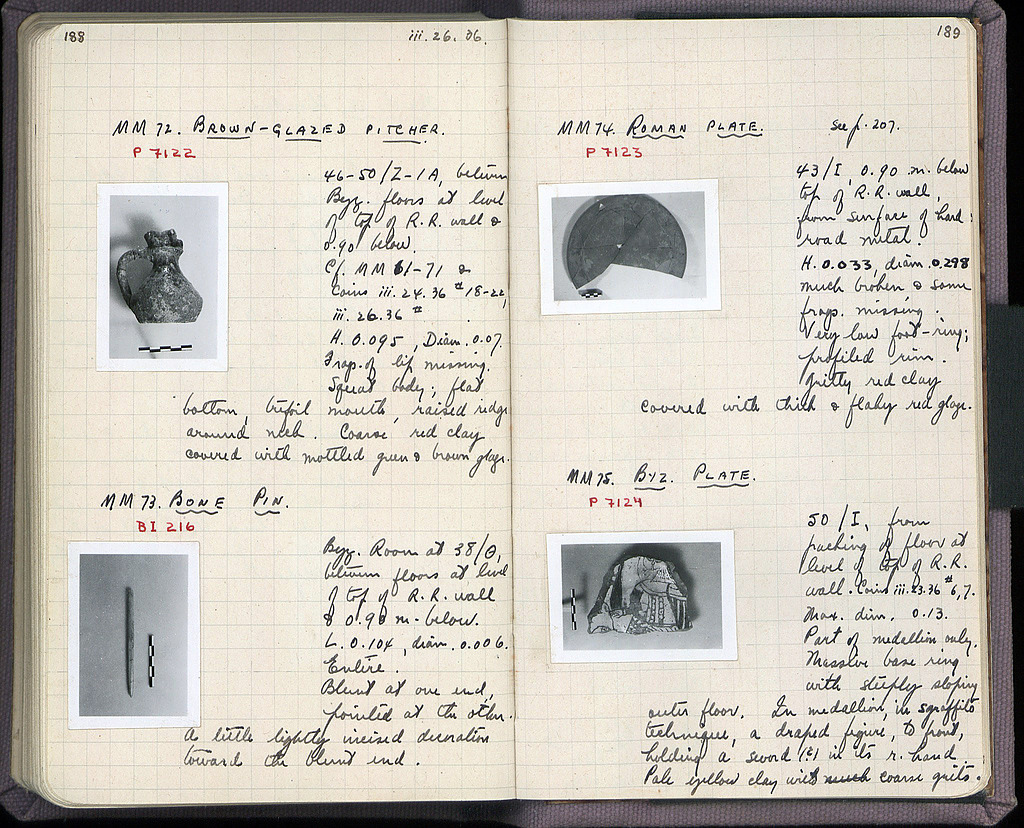 188
iii. 26. 36.
MM 72. BROWN-GLAZED PITCHER.
P 7122
46-50/Z-IA, between
Byz. floors at level
of top of R.R. wall &
0.90 below.
Cf. MM 61-71 &
Coins iii.24.36 # 18-22,
iii.26.36 #
H. 0.095, Diam. 0.07.
Frag. of lip missing.
Squat body; flat
bottom, trefoil mouth, raised ridge
around neck. Coarse red clay
covered with mottled green & brown glaze.
MM 73. BONE PIN.
BI 216
Byz. Room at 38/Θ,
between floors at level
of top of R.R. wall
& 0.90 m. below.
L. 0.104, diam. 0.006.
Entire.
Blunt at one end,
pointed at the other.
A little lightly incised decoration
toward the blunt end.
189
MM 74. ROMAN PLATE. See p. 207.
P 7123
43/I, 0.90 m. below
top of R.R. wall,
from surface of hard
road metal.
H. 0.033, diam. 0.298
Much broken & some
frags. missing.
Very low foot-ring;
profiled rim.
Gritty red clay
covered with thick & flaky red glaze.
MM 75. BYZ. PLATE.
P 7124
50/I, from
packing of floor at
level of top of R.R.
wall. Coins iii.23.36 # 6,7.
Max. dim. 0.13.
Part of medallion only.
Massive base ring
with steeply sloping
outer floor. In medallion, in sgraffito
technique, a draped figure, to front,
holding a sword (?) in its r. hand.
Pale yellow clay with much coarse grits.